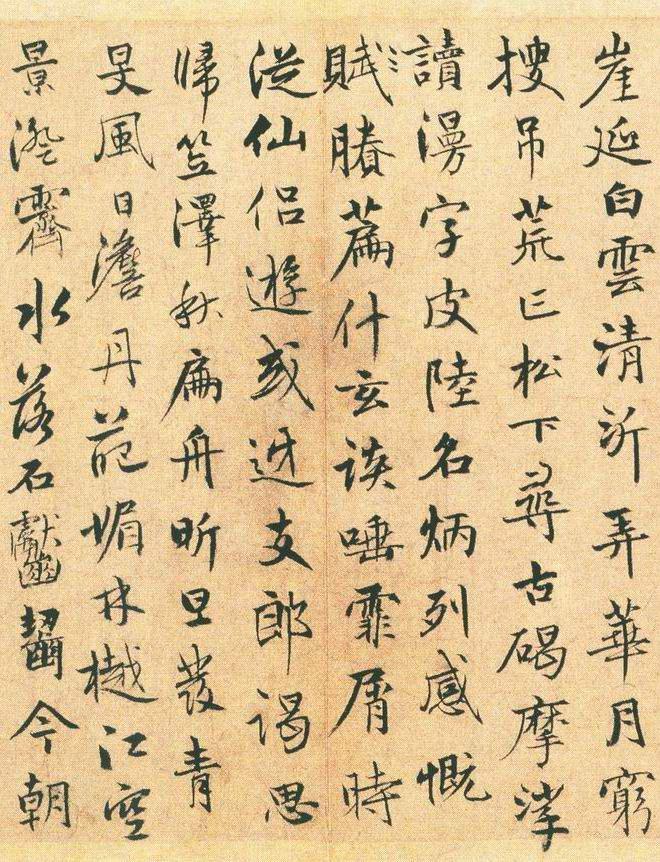 崖延白雲清泝弄華月窮
搜吊荒亡松下尋古碣摩挲
讀漫字皮陸名炳列感慨
賦勝篇什玄談唾霏屑時
從仙侣遊或迓支郎謁思
歸笠澤秋扁舟昕旦發青
旻風日澹丹葩媚林樾江空
景澄霽水落石齾今朝